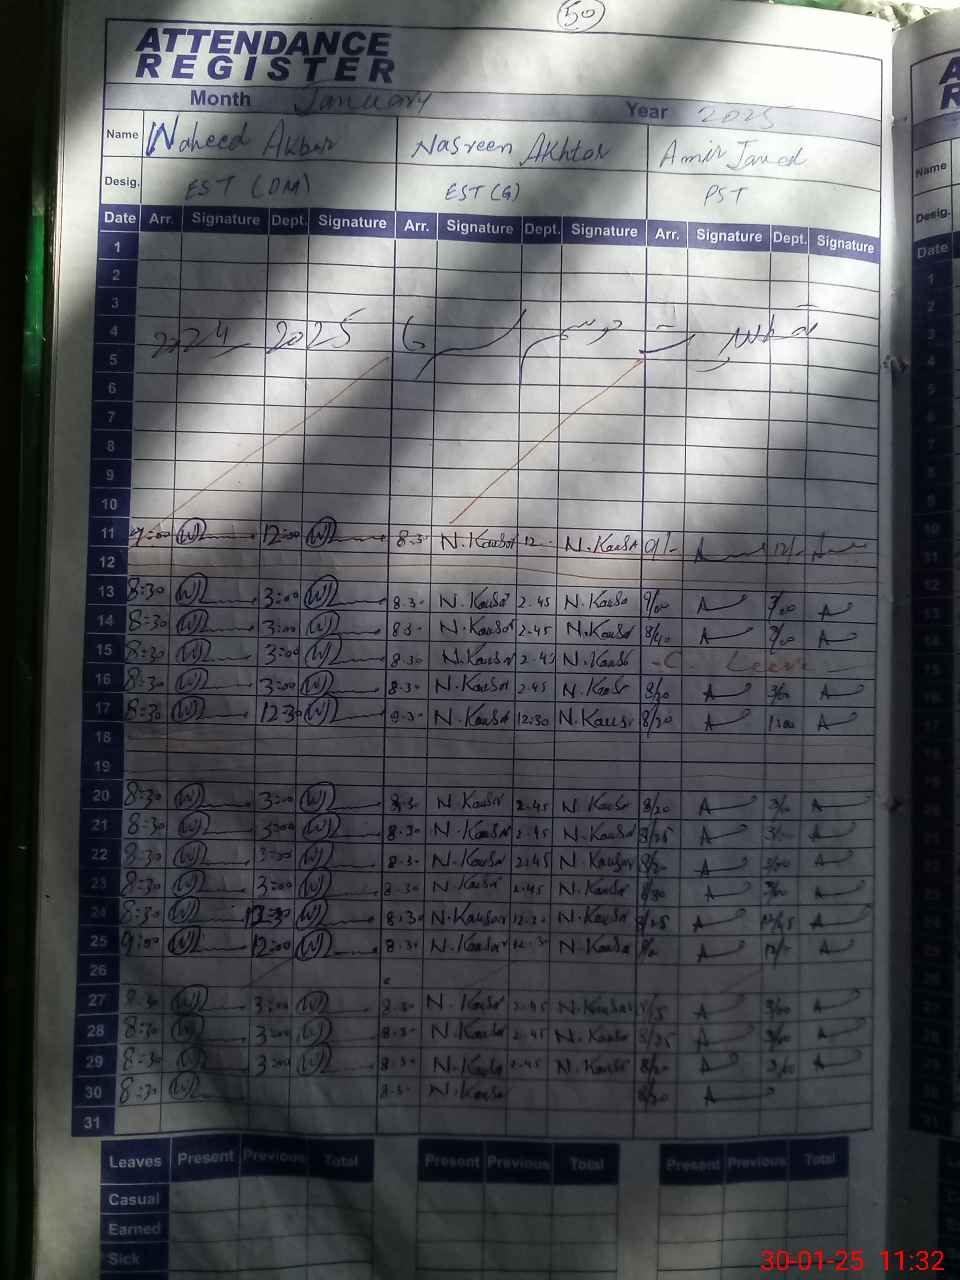 50
ATTENDANCE
REGISTER
Month January Year 2025
Name Waheed Akbar Nasreen Akhtar Amir Javed
Desig. EST (DM) EST (G) PST
Date Arr. Signature Dept. Signature Arr. Signature Dept. Signature Arr. Signature Dept. Signature
1
2
3
4 2024 2025
5
6
7
8
9
10
11 9:00 W 12:00 W 8.30 N.Kausar 12 N.Kausar 9/- A 12/- A
12
13 8:30 W 3:00 W 8.30 N.Kausar 2.45 N.Kausar 9/00 A 3/00 A
14 8:30 W 3:00 W 8.30 N.Kausar 2.45 N.Kausar 8/40 A 3/00 A
15 8:30 W 3:00 W 8.30 N.Kausar 2.45 N.Kausar C. Leave
16 8:30 W 3:00 W 8.30 N.Kausar 2.45 N.Kausar 8/20 A 3/00 A
17 8:30 W 12:30 W N.Kausar 12:30 N.Kausar 8/20 A A
18
19
20 8:30 W 3:00 W 8.30 N.Kausar 2.45 N.Kausar 8/20 A 3/00 A
21 8:30 W 3:00 W 8.30 N.Kausar 2.45 N.Kausar 8/25 A A
22 8:30 W 3:00 W 8.30 N.Kausar 2.45 N.Kausar 8/20 A 3/00 A
23 8:30 W 3:00 W 8.30 N.Kausar 2.45 N.Kausar 8/30 A 3/00 A
24 8:30 W 12:30 W 8.30 N.Kausar 12.30 N.Kausar 8/25 A A
25 9:00 W 12:00 W 8.30 N.Kausar 12.30 N.Kausar A A
26
27 8:30 W 3:00 W 8.30 N.Kausar 2.45 N.Kausar A 3/00 A
28 8:30 W 3:00 W 8.30 N.Kausar 2.45 N.Kausar 8/25 A 3/00 A
29 8:30 W 3:00 W 8.30 N.Kausar 2.45 N.Kausar 8/20 A 3/00 A
30 8:30 W 8.30 N.Kausar 8/20 A
31
Leaves Present Previous Total Present Previous Total Present Previous Total
Casual
Earned
Sick
30-01-25 11:32